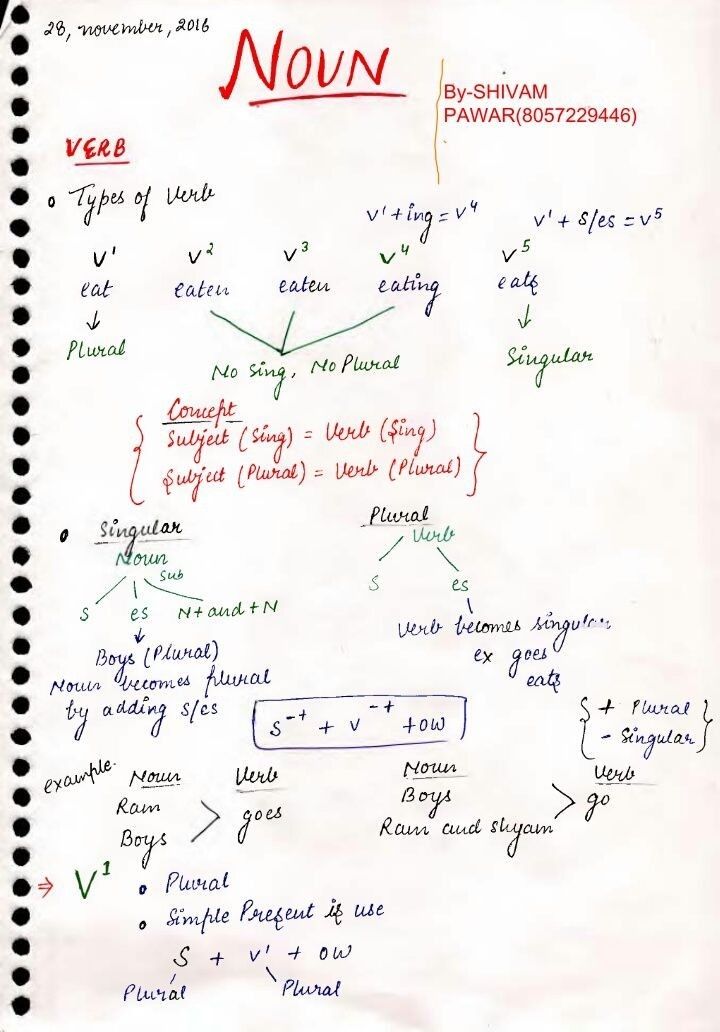 28, november, 2016
NOUN
By-SHIVAM
PAWAR(8057229446)
VERB
Types of Verb
V¹+ing = V⁴ V¹ + s/es = V⁵
V¹ V² V³ V⁴ V⁵
eat eaten eaten eating eats
Plural No Sing, No Plural Singular
Concept
Subject (Sing) = Verb (Sing)
Subject (Plural) = Verb (Plural)
Singular Plural
Noun Verb
Sub
s es N+and+N s es
Boys (Plural) Verb becomes singular
Noun becomes plural ex goes
by adding s/es eats
S⁻⁺ + V⁻⁺ + OW
+ Plural
- Singular
example. Noun Verb Noun Verb
Ram Boys
Boys > goes Ram and shyam > go
⇒ V¹ Plural
Simple Present is use
S + V¹ + OW
Plural Plural